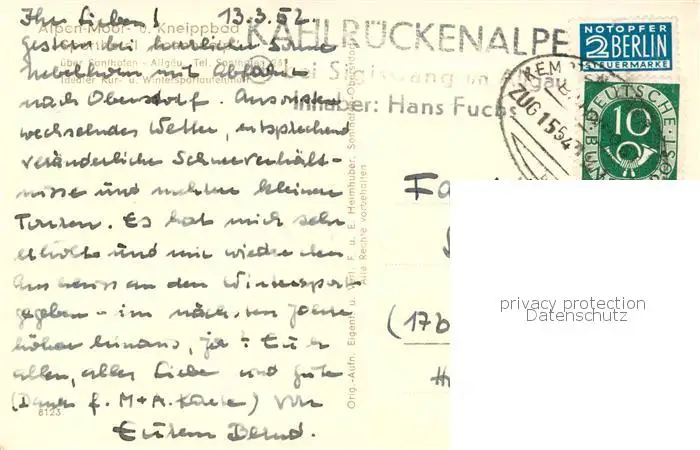 Ihr Lieben! 13.3.52.
Alpen-Moor- u. Kneippbad
KAHLRÜCKENALPE
Gestern bei herrlicher Sonne
über Sonthofen - Allgäu
Nebelhorn mit Abfahrt
idealer Kur- u. Wintersportaufenthalt
bei Sigiswang im Allgäu
nach Oberstdorf. Ansonsten
Inhaber: Hans Fuchs
wechselndes Wetter, entsprechend
veränderliche Schneeverhält-
nisse und mehrere kleinen
Touren. Es hat mich sehr
erholt und mir wieder den
Anschluss an den Wintersport
gegeben - im nächsten Jahre
höher hinaus, ja? Euch
allen, alles Liebe und Gute
(Dank f. M+A. Karte) Von
8123
Eurem Bernd.
Orig.-Aufn. Eigent. u. Verl. F. u. E. Heimhuber, Sonthofen-Oberstdorf
Alle Rechte vorbehalten
NOTOPFER
2 BERLIN
STEUERMARKE
KEMPTEN
ZUG 1554
DEUTSCHE
BUNDESPOST
10
Fa
(17b
privacy protection
Datenschutz